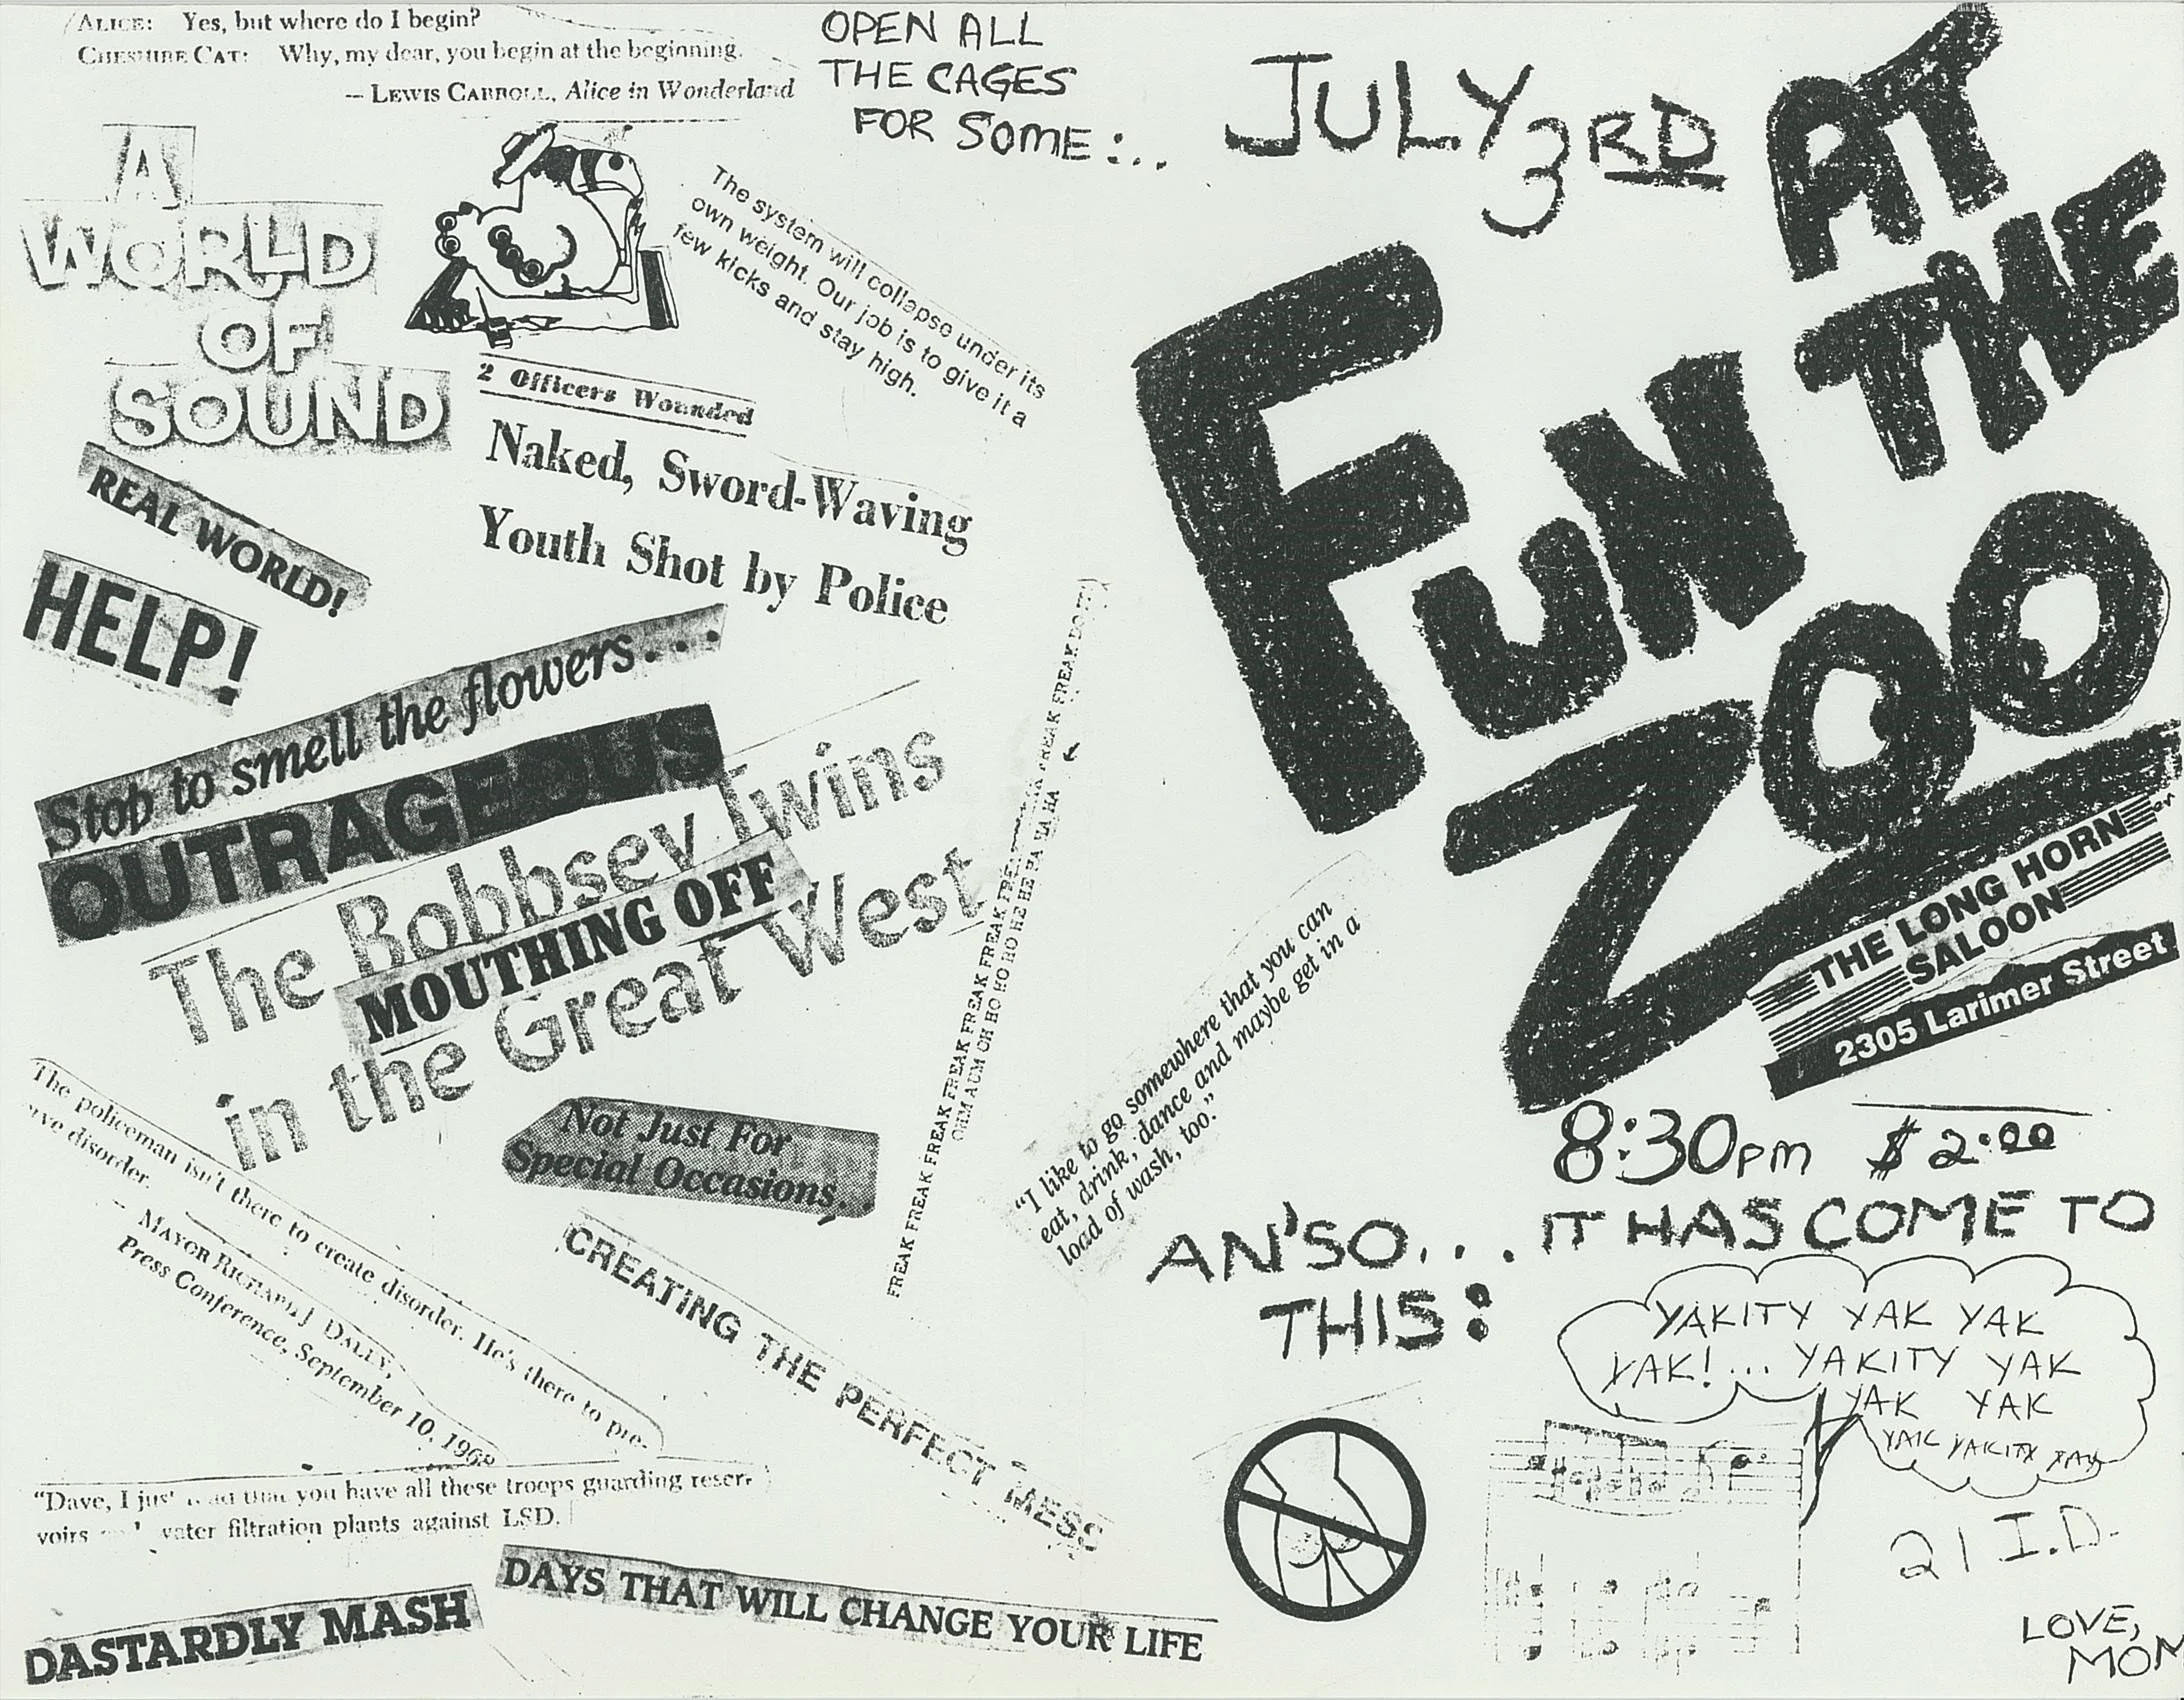 ALICE: Yes, but where do I begin?
CHESHIRE CAT: Why, my dear, you begin at the beginning.
— LEWIS CARROLL, Alice in Wonderland
OPEN ALL
THE CAGES
FOR SOME:...
JULY 3RD
AT
THE
FUN
ZOO
A
WORLD
OF
SOUND
The system will collapse under its
own weight. Our job is to give it a
few kicks and stay high.
2 Officers Wounded
Naked, Sword-Waving
Youth Shot by Police
REAL WORLD!
HELP!
Stop to smell the flowers...
OUTRAGEOUS
The Bobbsey Twins
MOUTHING OFF
in the Great West
FREAK FREAK FREAK FREAK FREAK FREAK FREAK FREAK FREAK
OHM AUM OH HO HO HO HO HE HE HA HA HA
THE LONG HORN
SALOON
2305 Larimer Street
"I like to go somewhere that you can
eat, drink, dance and maybe get in a
load of wash, too."
8:30pm $2.00
AN'SO... IT HAS COME TO
THIS:
The policeman isn't there to create disorder. He's there to pre-
serve disorder.
— MAYOR RICHARD J DALLY,
Press Conference, September 10, 1968
Not Just For
Special Occasions...
CREATING THE PERFECT MESS
YAKITY YAK YAK
YAK!... YAKITY YAK
YAK YAK
YAK YAKITY YAK
"Dave, I just read that you have all these troops guarding reser-
voirs and water filtration plants against LSD.
DASTARDLY MASH
DAYS THAT WILL CHANGE YOUR LIFE
21 I.D.
LOVE,
MOM